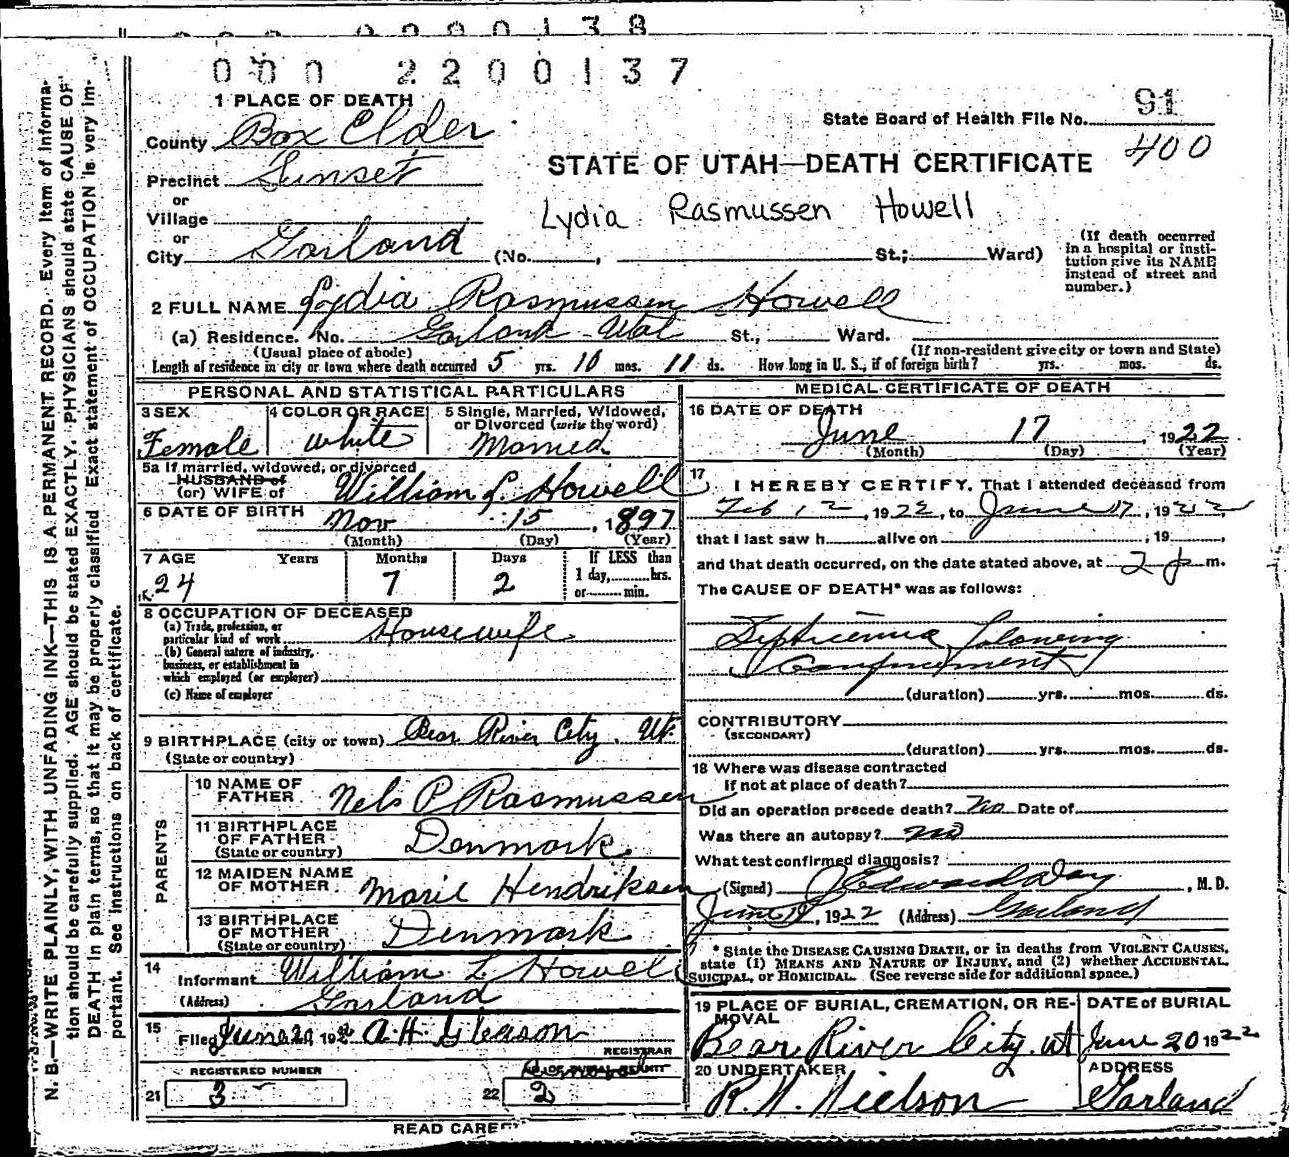 000 2200137
1 PLACE OF DEATH
County Box Elder
Precinct Sunset
or
Village
or
City Garland (No. , St.; Ward)
State Board of Health File No. 91
400
STATE OF UTAH—DEATH CERTIFICATE
Lydia Rasmussen Howell
(If death occurred
in a hospital or insti-
tution give its NAME
instead of street and
number.)
2 FULL NAME Lydia Rasmussen Howell
(a) Residence. No. Garland Utah St., Ward.
(Usual place of abode) (If non-resident give city or town and State)
Length of residence in city or town where death occurred 5 yrs. 10 mos. 11 ds. How long in U. S., if of foreign birth? yrs. mos. ds.
PERSONAL AND STATISTICAL PARTICULARS
3 SEX 4 COLOR OR RACE 5 Single, Married, Widowed,
or Divorced (write the word)
Female White Married
5a If married, widowed, or divorced
HUSBAND of
(or) WIFE of William L. Howell
6 DATE OF BIRTH Nov 15, 1897
(Month) (Day) (Year)
7 AGE Years Months Days If LESS than
1 day, hrs.
or min.
24 7 2
8 OCCUPATION OF DECEASED
(a) Trade, profession, or
particular kind of work Housewife
(b) General nature of industry,
business, or establishment in
which employed (or employer)
(c) Name of employer
9 BIRTHPLACE (city or town) Bear River City, Ut.
(State or country)
PARENTS
10 NAME OF
FATHER Nels P Rasmussen
11 BIRTHPLACE
OF FATHER
(State or country) Denmark
12 MAIDEN NAME
OF MOTHER Marie Hendriksen
13 BIRTHPLACE
OF MOTHER
(State or country) Denmark
14
Informant William L Howell
(Address) Garland
15
Filed June 20, 192 A H Gleason
REGISTRAR
REGISTERED NUMBER
21 3
NO. OF BURIAL PERMIT
22 2
READ CAREF
MEDICAL CERTIFICATE OF DEATH
16 DATE OF DEATH
June 17, 1922
(Month) (Day) (Year)
17 I HEREBY CERTIFY, That I attended deceased from
Feb 12, 1922, to June 17, 1922
that I last saw h alive on , 19 ,
and that death occurred, on the date stated above, at 2 p m.
The CAUSE OF DEATH* was as follows:
Septicemia folowing
Confinement
(duration) yrs. mos. ds.
CONTRIBUTORY
(SECONDARY)
(duration) yrs. mos. ds.
18 Where was disease contracted
if not at place of death?
Did an operation precede death? No Date of
Was there an autopsy? No
What test confirmed diagnosis?
(Signed) Edward Day, M. D.
June 19, 1922 (Address) Garland
* State the DISEASE CAUSING DEATH, or in deaths from VIOLENT CAUSES,
state (1) MEANS AND NATURE OF INJURY, and (2) whether ACCIDENTAL,
SUICIDAL, or HOMICIDAL. (See reverse side for additional space.)
19 PLACE OF BURIAL, CREMATION, OR RE-
MOVAL
Bear River City. ut
DATE of BURIAL
June 20 1922
20 UNDERTAKER
R. N. Nielson
ADDRESS
Garland
N. B.—WRITE PLAINLY, WITH UNFADING INK—THIS IS A PERMANENT RECORD. Every item of informa-
tion should be carefully supplied. AGE should be stated EXACTLY. PHYSICIANS should state CAUSE OF
DEATH in plain terms, so that it may be properly classified. Exact statement of OCCUPATION is very im-
portant. See instructions on back of certificate.